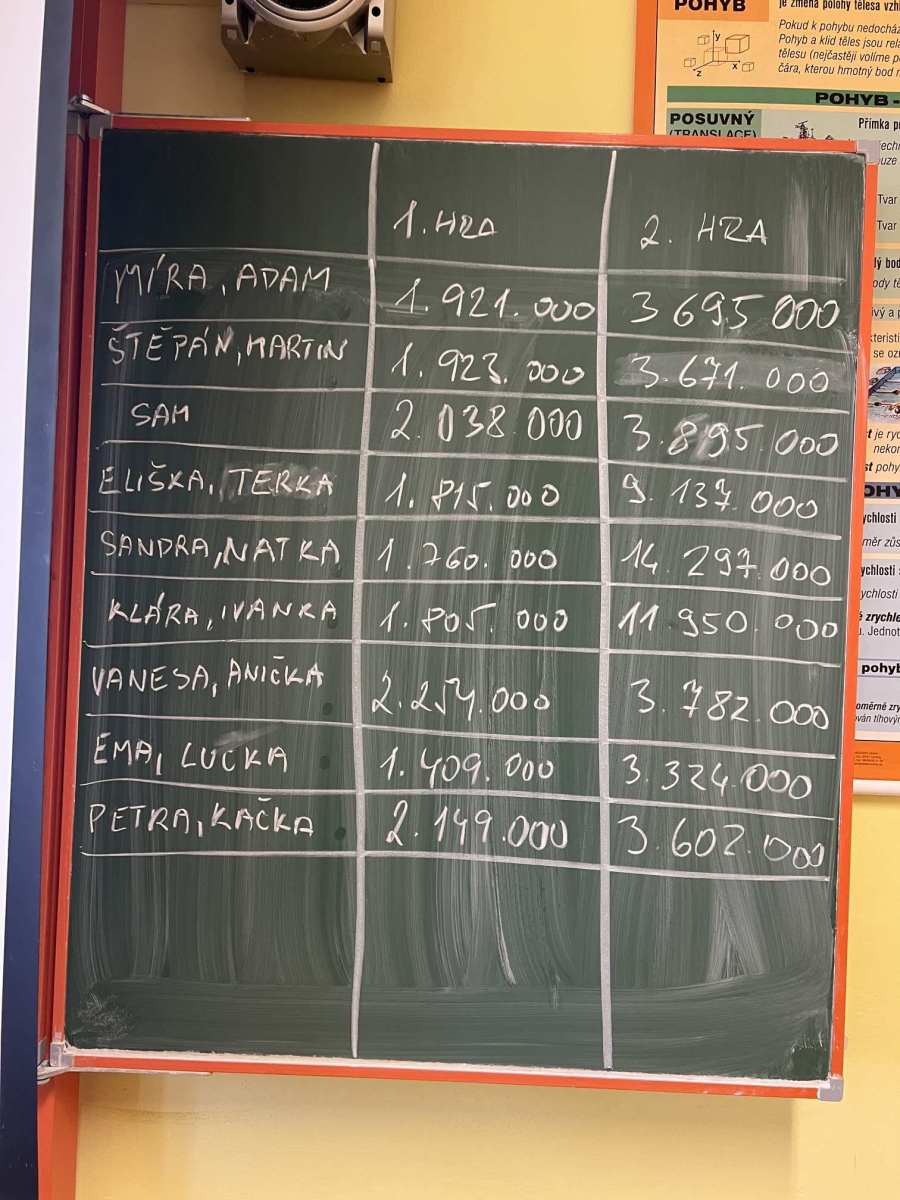 POHYB
je změna polohy tělesa vzhl
Pokud k pohybu nedocház
Pohyb a klid těles jsou rela
tělesu (nejčastěji volíme p
čára, kterou hmotný bod
y
x
z
POHYB -
POSUVNÝ
(TRANSLACE)
Přímka p
Tvar
Tvar
1. HRA 2. HRA
MÍRA, ADAM 1. 921. 000 3 695 000
ŠTĚPÁN, MARTIN 1. 923. 000 3. 671. 000
SAM 2. 038 000 3. 895. 000
ELIŠKA, TERKA 1. 815. 000 9. 137. 000
SANDRA, NATKA 1. 760. 000 14. 297. 000
KLÁRA, IVANKA 1. 805. 000 11. 950. 000
VANESA, ANIČKA 2. 254. 000 3. 782. 000
EMA, LUCKA 1. 409. 000 3. 324. 000
PETRA, KAČKA 2. 149. 000 3. 602. 000